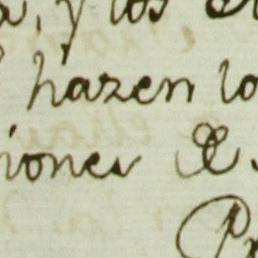 y los
hazen lo
iones &.